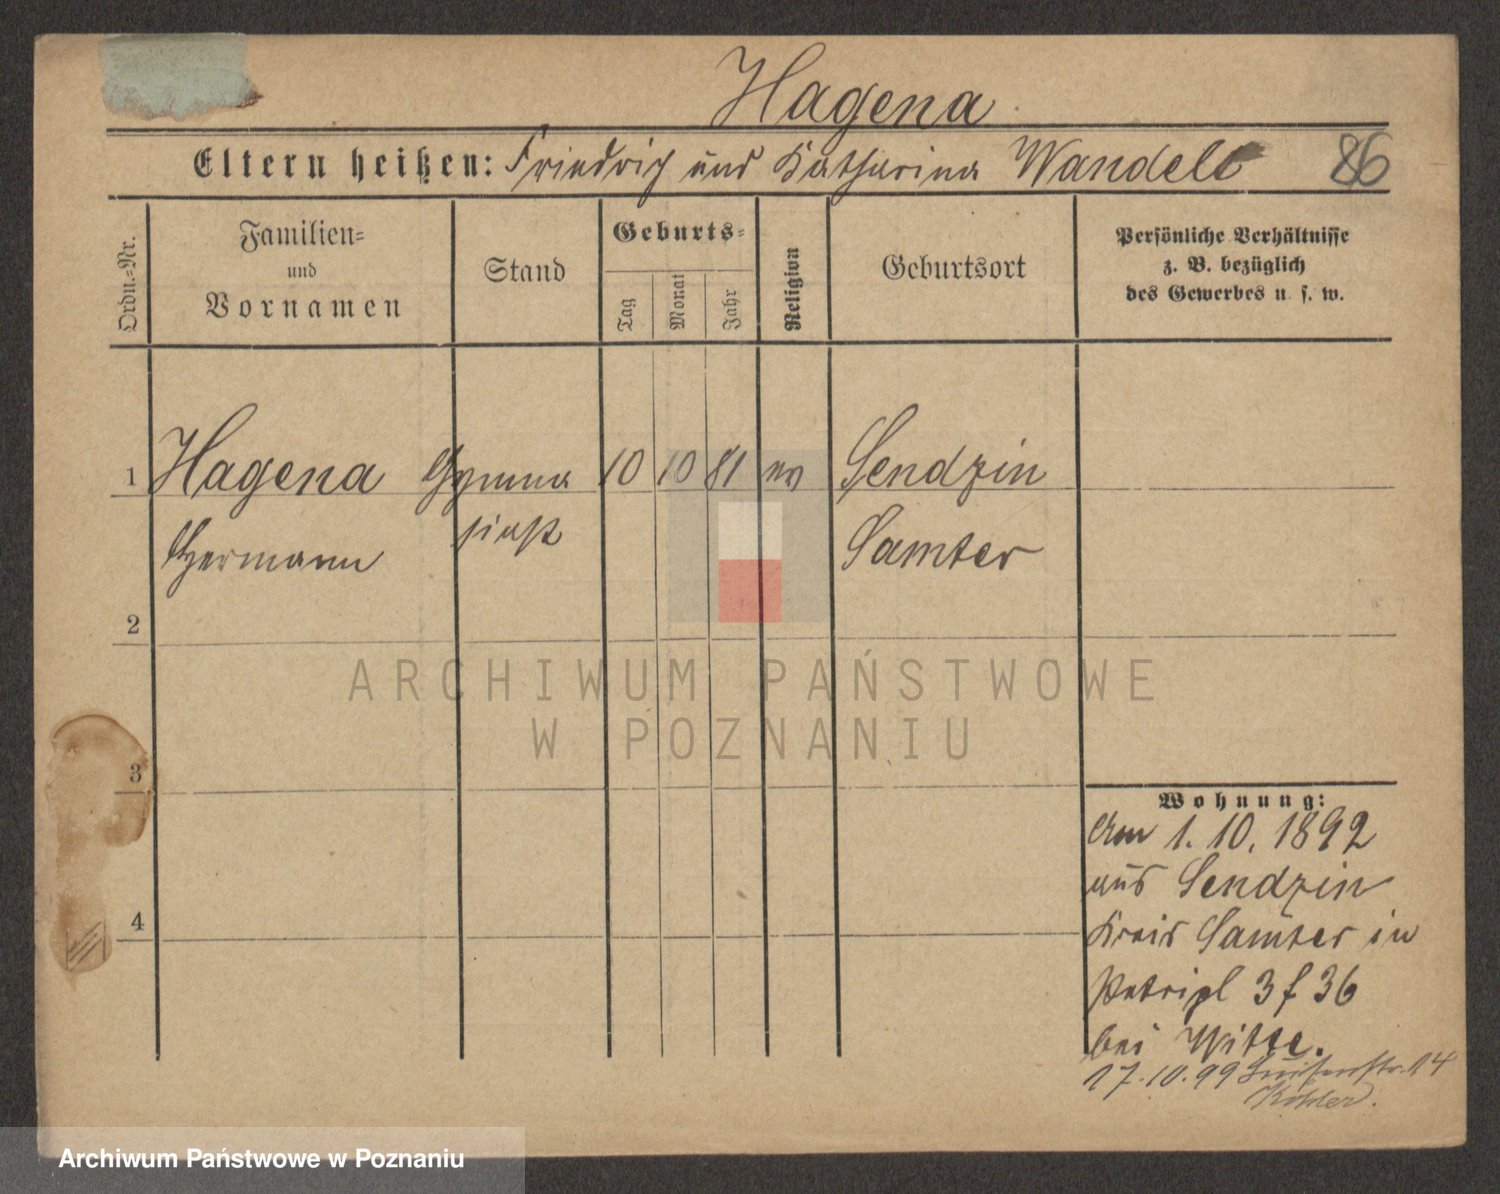 Hagena
Eltern heißen: Friedrich und Katharina Wandelt 86
Ordn.-Nr.
Familien-
und
Vornamen
Stand
Geburts-
Tag
Monat
Jahr
Religion
Geburtsort
Persönliche Verhältnisse
z. B. bezüglich
des Gewerbes u. s. w.
1 Hagena Gymna 10 10 81 ev Sendzin
Hermann siast Samter
2
3
4
Wohnung:
Am 1. 10. 1892
aus Sendzin
Kreis Samter in
Petripl 3 f 36
bei Witte.
17.10.99 Luisenstr. 14
Köhler.
ARCHIWUM PAŃSTWOWE
W POZNANIU
Archiwum Państwowe w Poznaniu